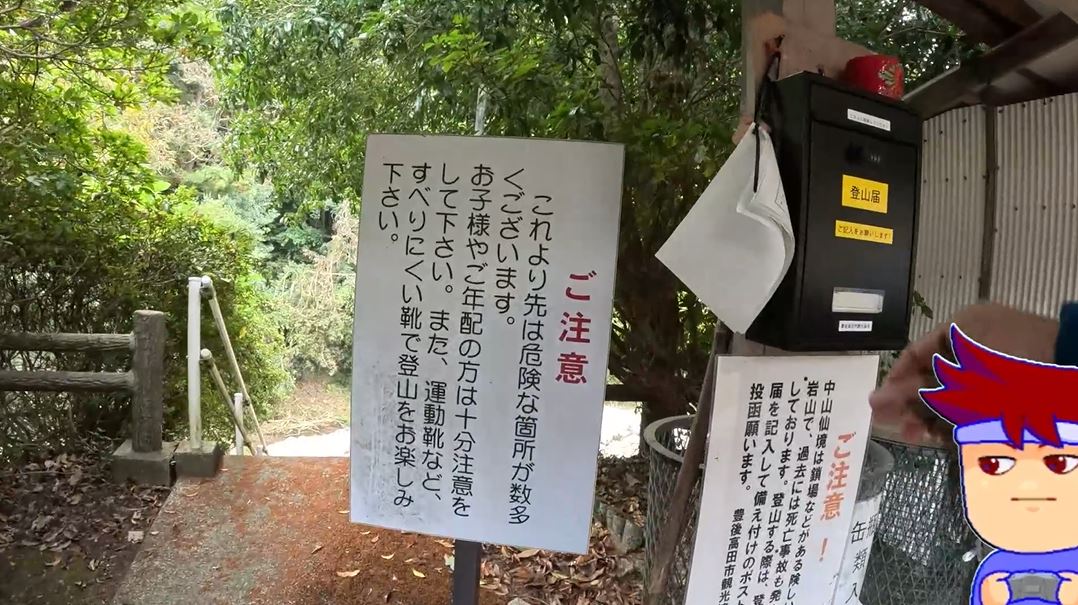 ご注意
これより先は危険な箇所が数多
くございます。
お子様やご年配の方は十分注意を
して下さい。また、運動靴など、
すべりにくい靴で登山をお楽しみ
下さい。
登山届
ご記入をお願いします!
ご注意!
中山仙境は鎖場などがある険しい
岩山で、過去には死亡事故も発
しております。登山する際は、登
届を記入して備え付けのポスト
投函願います。
豊後高田市観光
缶類入